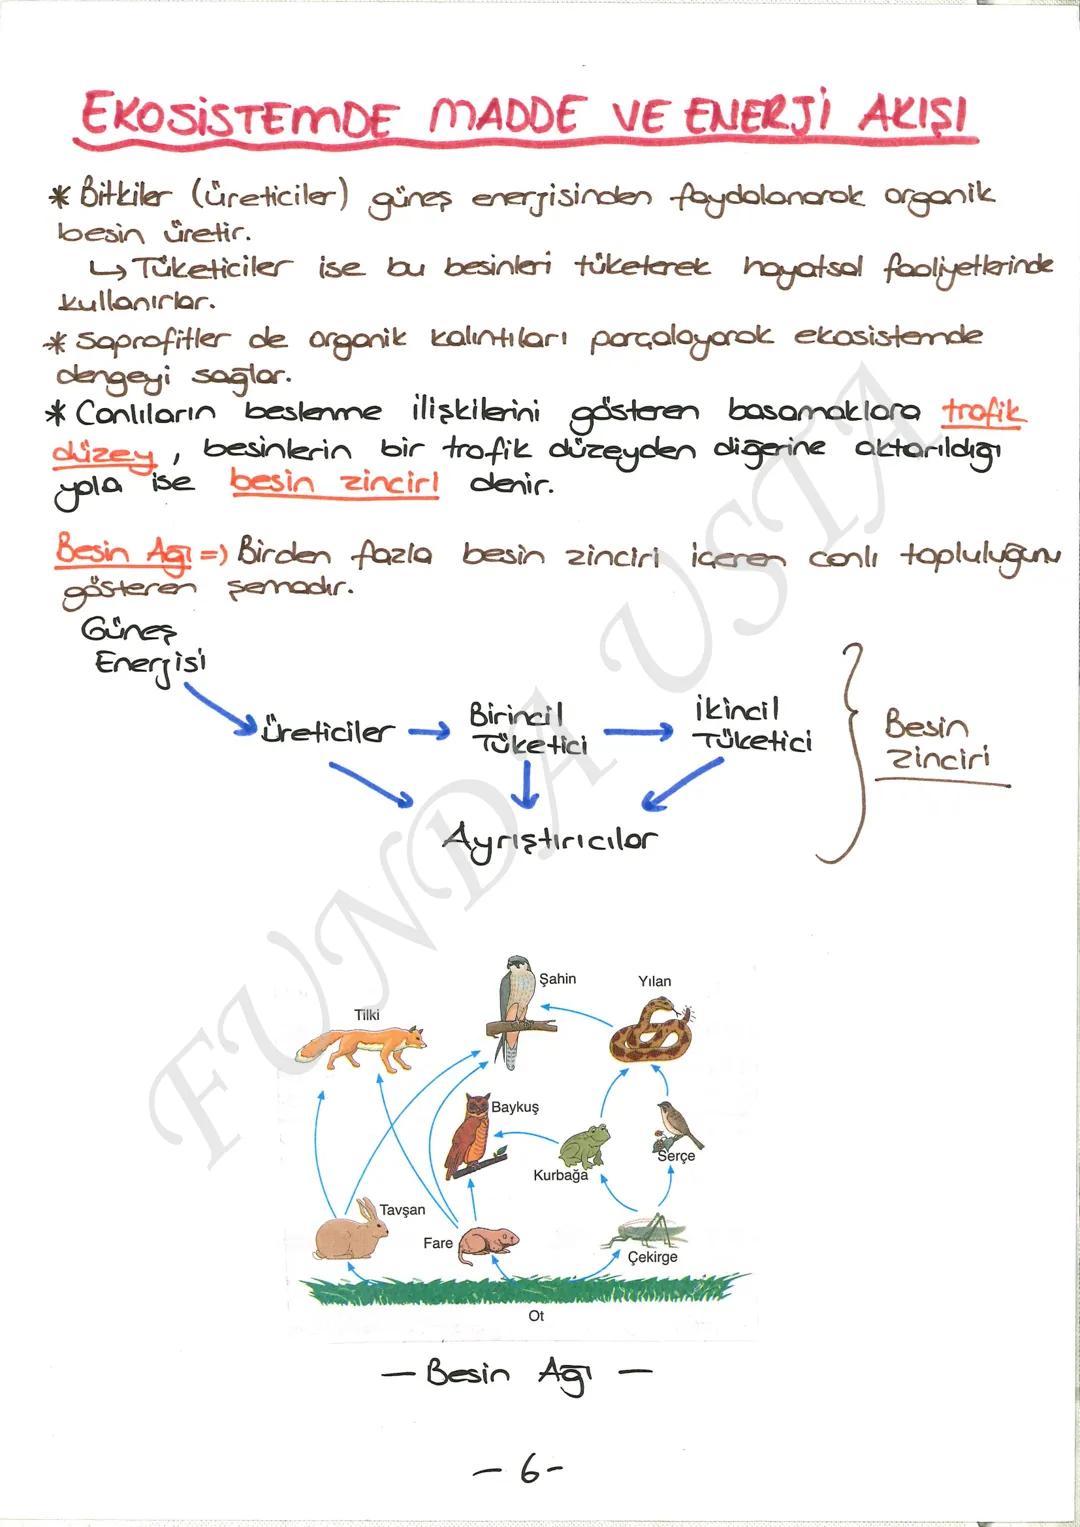 EKOSİSTEMDE MADDE VE ENERJİ AKIŞI
* Bitkiler (üreticiler) güneş enerjisinden faydalanarak organik
besin üretir.
↳ Tüketiciler ise bu besinleri tüketerek hayatsal faaliyetlerinde
kullanırlar.
* Saprofitler de organik kalıntıları parçalayarak ekosistemde
dengeyi sağlar.
* Canlıların beslenme ilişkilerini gösteren basamaklara trofik
düzey, besinlerin bir trofik düzeyden diğerine aktarıldığı
yola ise besin zinciri denir.
Besin Ağı => Birden fazla besin zinciri içeren canlı topluluğunu
gösteren şemadır.
Güneş
Enerjisi
Üreticiler
Birincil
Tüketici
İkincil
Tüketici
Besin
Zinciri
Ayrıştırıcılar
FUNDA USTA
Şahin
Yılan
Tilki
Baykuş
Kurbağa
Serçe
Tavşan
Fare
Çekirge
Ot
- Besin Ağı -
- 6 -